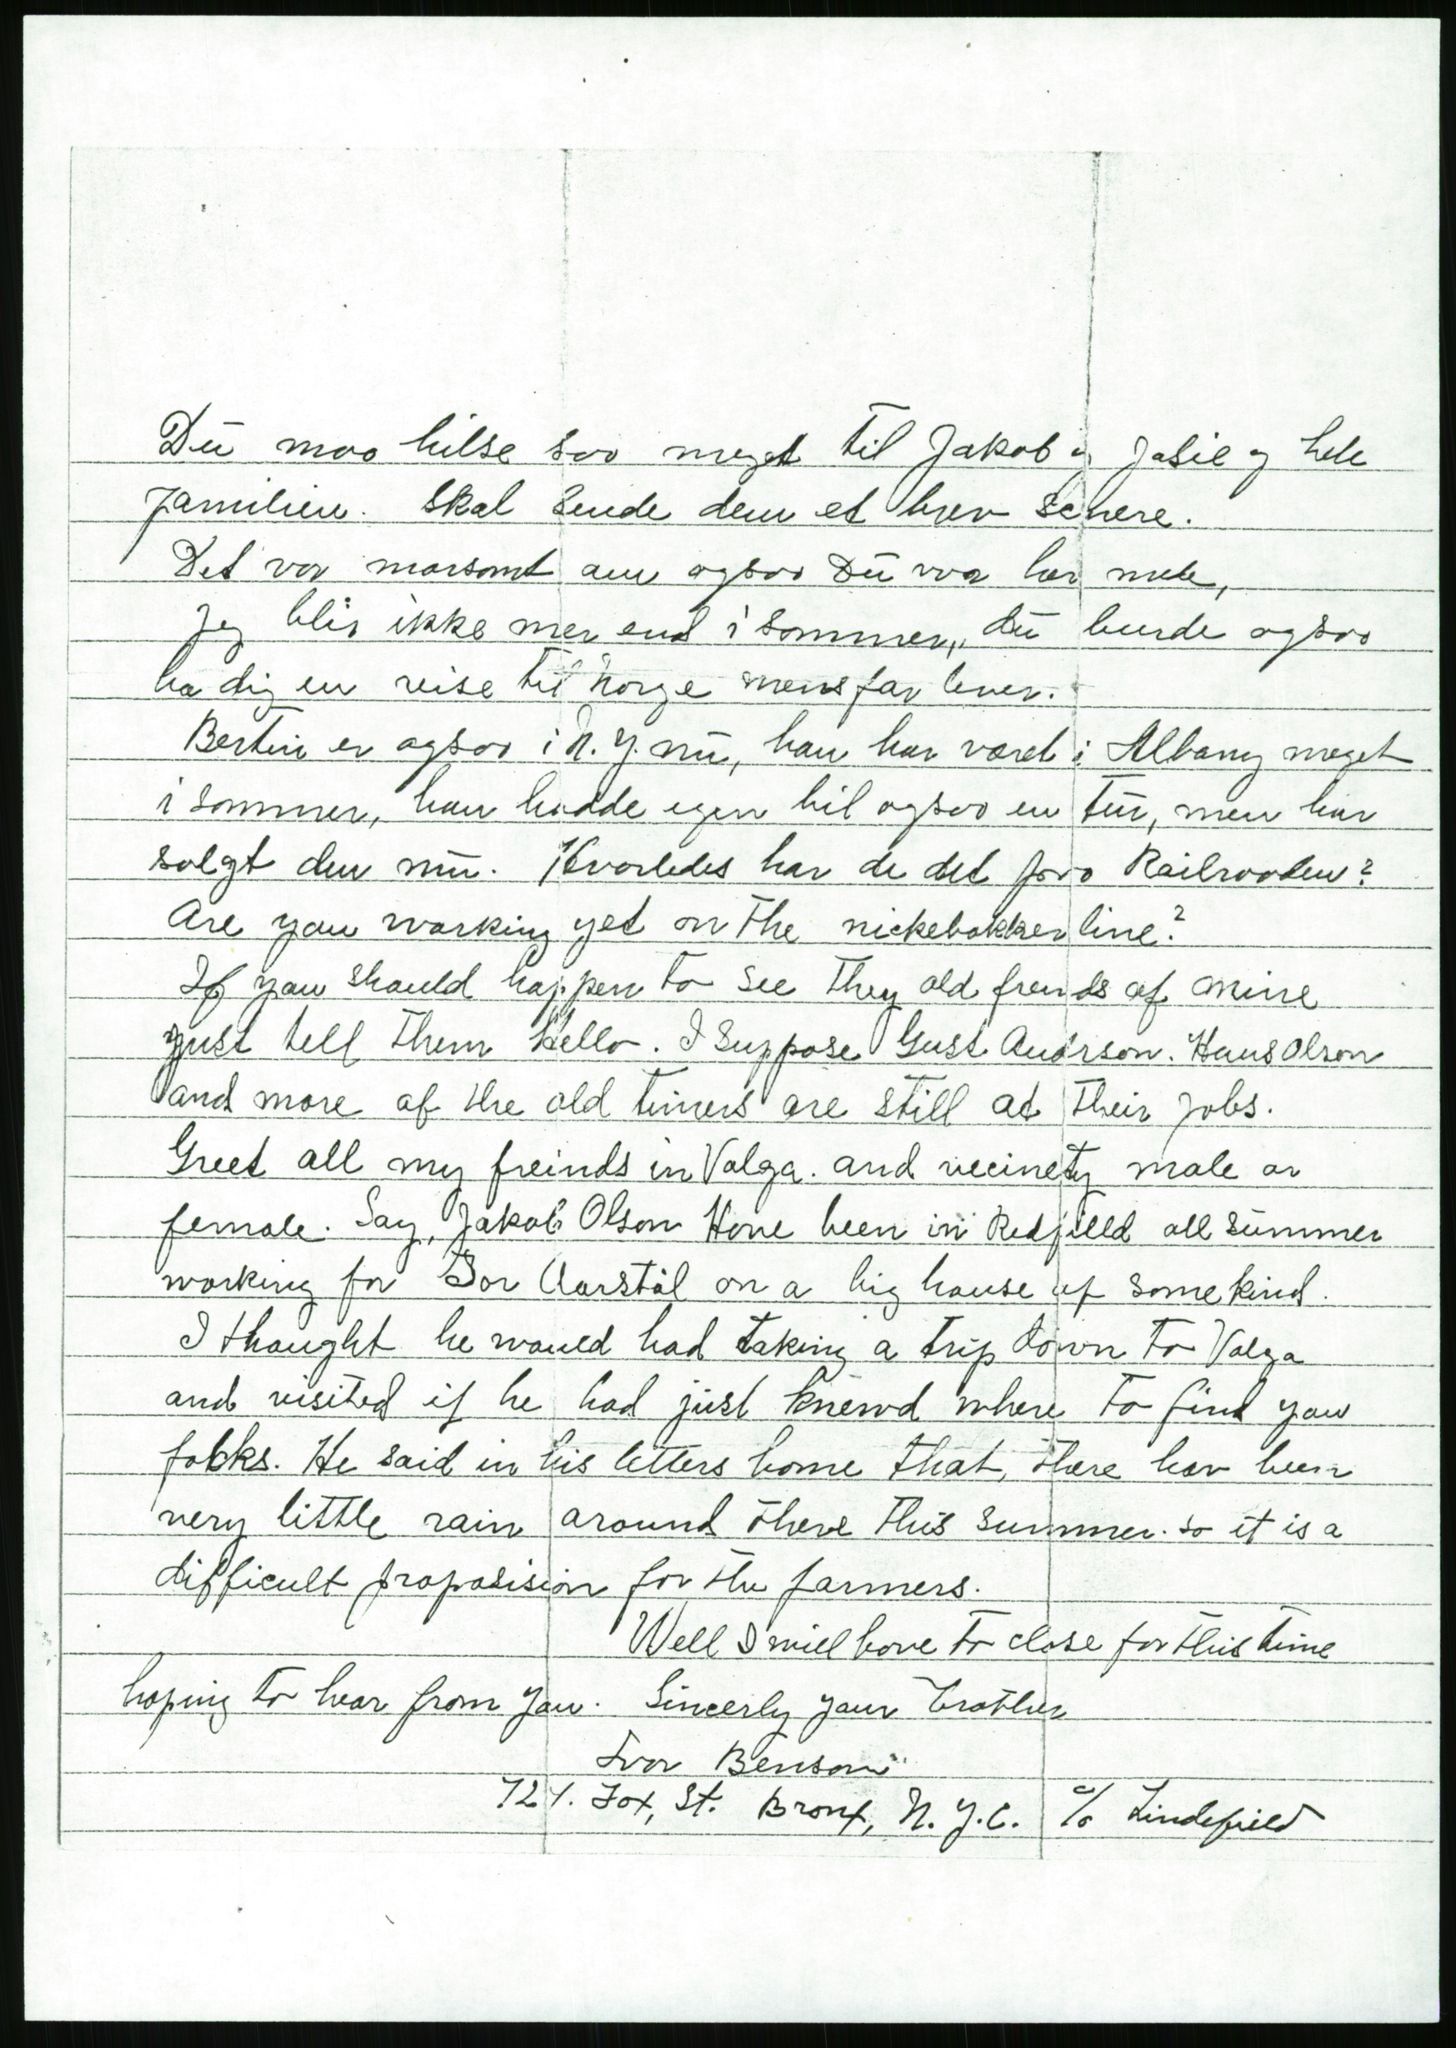 Dü maa hilse saa meget til Jakob og Josie og hele
familien. Skal sende dem et brev senere.
Det var morsomt om ogsaa Dü var her nede,
Jeg blir ikke mer end i sommer, dü burde ogsaa
ha dig en reise til Norge mens far lever.
Bertin er ogsaa i N.Y. nü, han har været i Albany meget
i sommer, han hadde egen bil ogsaa en tür, men har
solgt den nü. Hvorledes har de det paa Railroaden?
Are you working yet on the nickebokker line?
If you should happen to see they old frends of mine
yust tell them hello. I suppose Gust Andrson. Hans Olson
and more of the old timers are still at their jobs.
Greet all my freinds in Volga. and vecinety male or
female. Say, Jakob Olson Hove been in Redfield all summer
working for Tor Aarstal on a big house of some kind.
I thought he would had taking a trip down to Volga
and visited if he had just knewd where to find you
folks. He said in his letters home that, there hav been
very little rain around there this summer. so it is a
difficult proposision for the farmers.
Well I will have to close for this time
hoping to hear from you. Sincerly your brother
Ivar Benson
724. Fox, St. Bronx, N.Y.C. c/o Lindefield